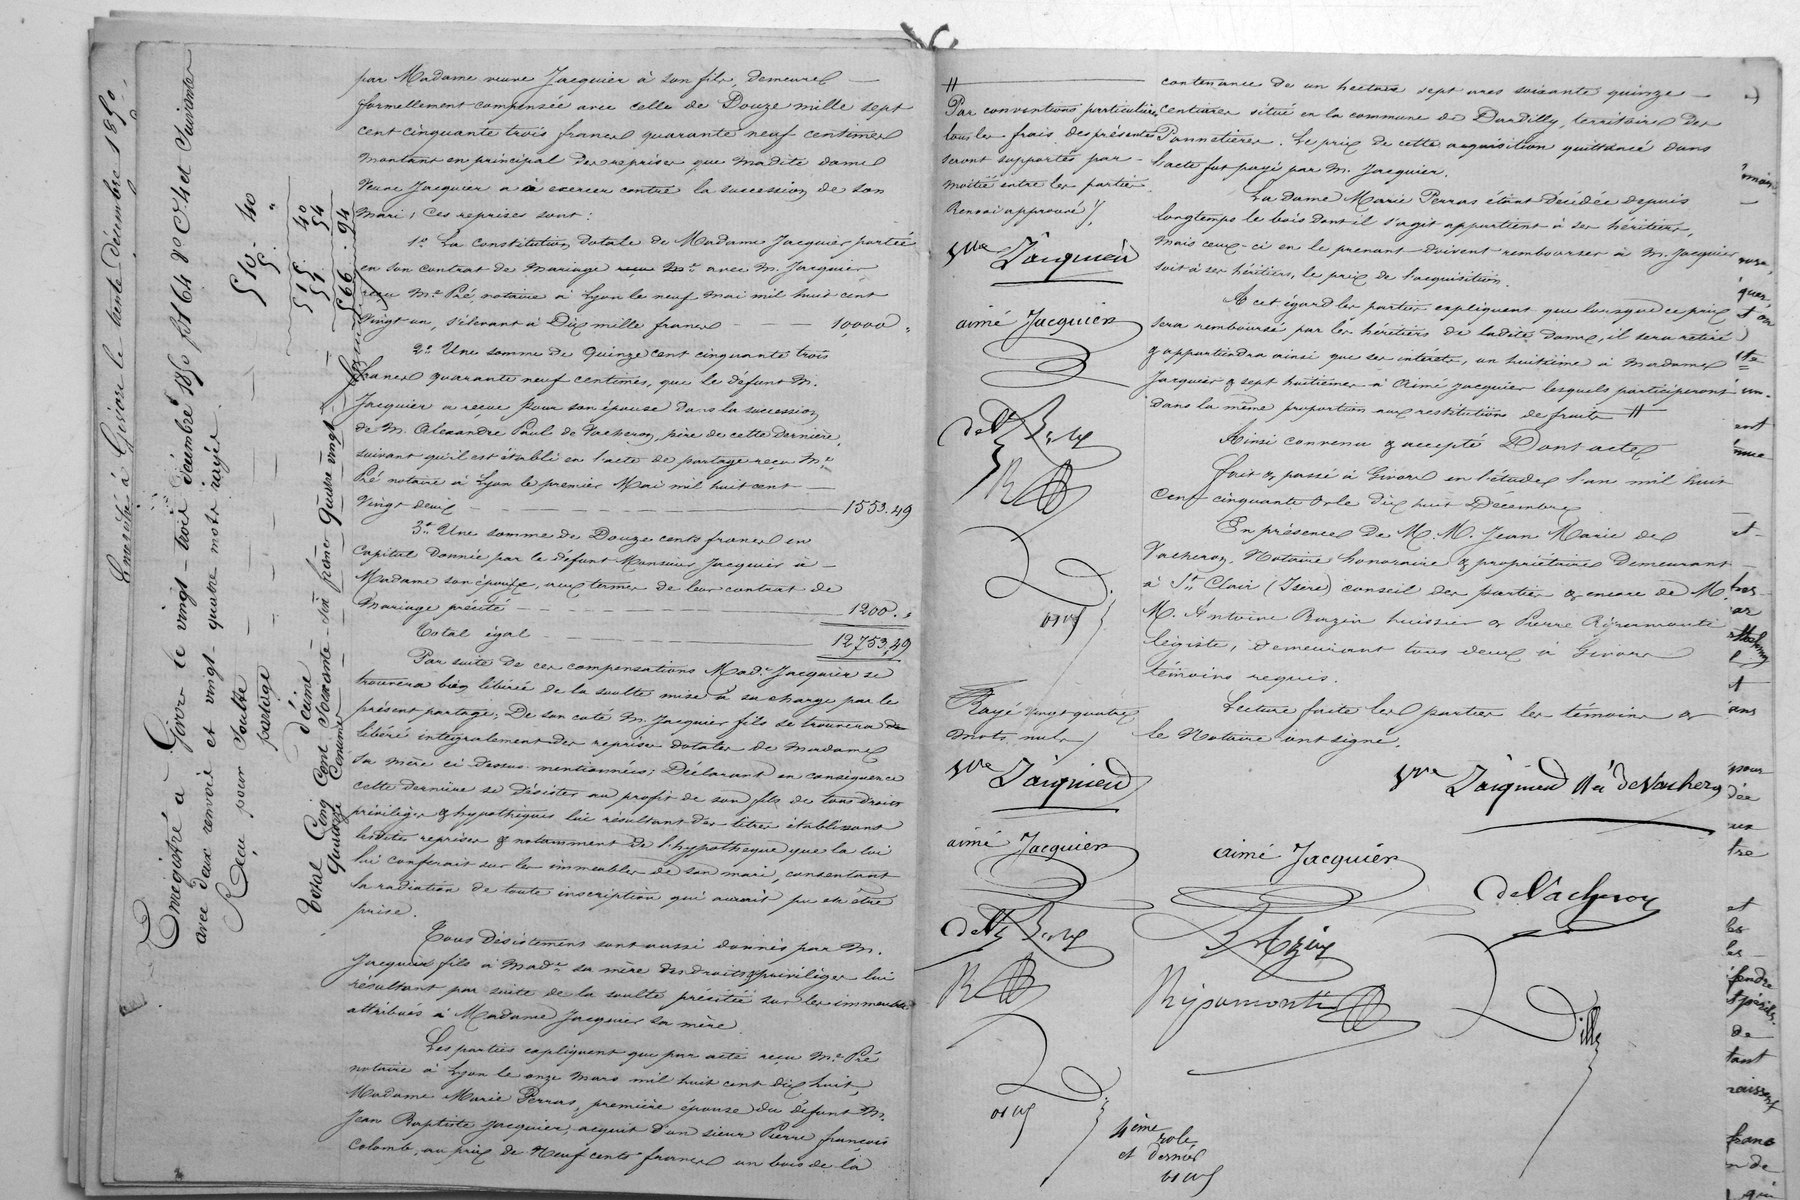 par Madame veuve Jacquier à son fils, demeure
formellement compensée avec celle de Douze mille sept
cent cinquante trois francs quarante neuf centimes
montant en principal des reprises que madite dame
Veuve Jacquier a à exercer contre la succession de son
Mari; Ces reprises sont:
1º La constitution dotale de Madame Jacquier portée
en son contrat de Mariage avec M. Jacquier
reçu Me Pré, notaire à Lyon le neuf mai mil huit cent
Vingt un, s'élevant à Dix mille francs 10,000 "
2º Une somme de Quinze cent cinquante trois
francs quarante neuf centimes, que le défunt M.
Jacquier a reçue pour son épouse dans la succession
de M. Alexandre Paul de Vacheron, père de cette dernière,
suivant qu'il est établi en l'acte de partage reçu Me
Pré notaire à Lyon le premier Mai mil huit cent
Vingt deux 1553.49
3º Une somme de Douze cents francs en
Capital donnée par le défunt Monsieur Jacquier à
Madame son épouse, aux termes de leur contrat de
Mariage précité 1200.
Total égal 12753,49
Par suite de ces compensations Made Jacquier se
trouvera bien libérée de la soulte mise à sa charge par le
présent partage; De son coté M. Jacquier fils se trouvera
libéré intégralement des reprises dotales de Madame
Sa mère ci dessus mentionnées; Déclarant en conséquence
cette dernière se désister au profit de son fils de tous droits
privilèges & hypothèques lui résultant des titres établissant
lesdites reprises & notamment de l'hypothèque que la loi
lui conférait sur les immeubles de son mari, consentant
la radiation de toute inscription qui aurait pu être
prise.
Tous désistement sont aussi donnés par M.
Jacquier fils à Made sa mère des droits & privilèges lui
résultant par suite de la soulte précitée sur les immeubles
attribués à Madame Jacquier sa mère.
Les parties expliquent que par acte reçu Me Pré
notaire à Lyon le onze Mars mil huit cent dix huit,
Madame Marie Perras, première épouse du défunt M.
Jean Baptiste Jacquier, acquit d'un sieur Pierre françois
Colomb, au prix de Neuf cents francs un bois de la
Enregistré à Givors le trente décembre 1850.
Enregistré à Givors le vingt-trois décembre 1850 fº 164 Vº C. 4 et Suivantes
avec deux renvois et vingt-quatre mots rayés.
Reçu pour Soulte 510. 40
partage 5. "
515. 40
décime 51. 54
566. 94
Total Cinq Cent Soixante-six francs quatre vingt
Quatorze Centimes
//
Par conventions particulières
tous les frais des présentes
seront supportés par
moitié entre les parties.
Renvoi approuvé /.
Vve Jacquier
aimé Jacquier
Rayé vingt quatre
mots nuls /
Vve Jacquier
aimé Jacquier
4ème rôle
et dernier
contenance de un hectare sept ares soixante quinze
Centiares situé en la commune de Dardilly, territoire des
Pannetières. Le prix de cette acquisition quittancé dans
l'acte fut payé par M. Jacquier.
La dame Marie Perras étant décédée depuis
longtemps le bois dont il s'agit appartient à ses héritiers,
Mais ceux-ci en le prenant doivent rembourser à M. Jacquier
soit à ses héritiers, le prix de l'acquisition.
A cet égard les parties expliquent que lorsque ce prix
sera remboursé par les héritiers de ladite dame, il sera retiré
& appartiendra ainsi que ses intérêts, un huitième à Madame
Jacquier & sept huitièmes à Aimé Jacquier lesquels participeront
dans la même proportion aux restitutions de fruits //
Ainsi convenu & accepté Dont acte
fait & passé à Givors en l'étude l'an mil huit
Cent cinquante & le dix huit Décembre
En présence de M. M. Jean Marie de
Vacheron, Notaire honoraire & propriétaire Demeurant
à St Clair (Isère) conseil des parties & encore de M.
M. Antoine Bazin huissier & Pierre Ripamonti
légiste, demeurant tous deux à Givors
témoins requis.
Lecture faite les parties les témoins &
le Notaire ont signé.
Vve Jacquier née de Vacheron
aimé Jacquier
de Vacheron
Bazin
Ripamonti
Dilly